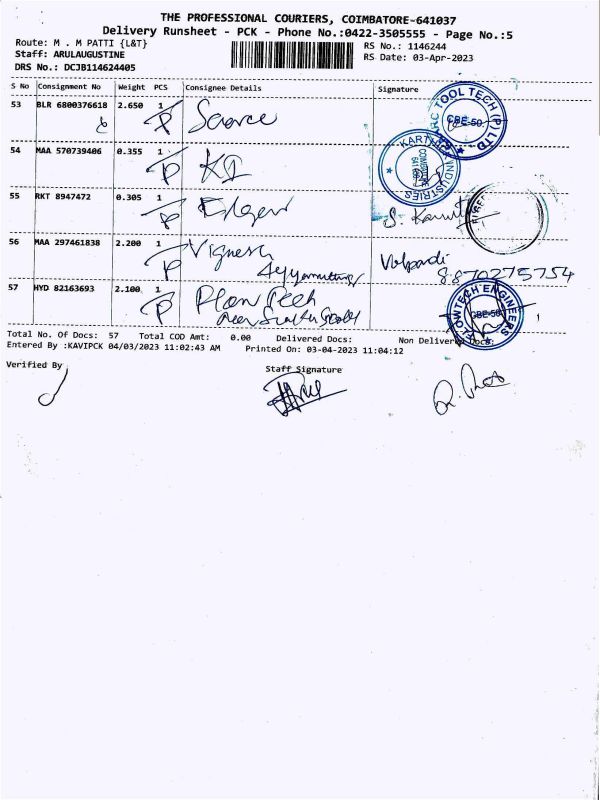 THE PROFESSIONAL COURIERS, COIMBATORE-641037
Delivery Runsheet - PCK - Phone No.:0422-3505555 - Page No.:5
Route: M . M PATTI {L&T}
RS No.: 1146244
Staff: ARULAUGUSTINE
RS Date: 03-Apr-2023
DRS No.: DCJB114624405
S No Consignment No Weight PCS Consignee Details Signature
53 BLR 6800376618 2.650 1
TOOL TECH (P) LTD
CBE-50
54 MAA 570739406 0.355 1 KI
INDUSTRIES
55 RKT 8947472 0.305 1
S.
56 MAA 297461838 2.200 1 Vignesh
8870275754
57 HYD 82163693 2.100 1 Plan Tech
FLOWTECH ENGINEERS
CBE-50
Total No. Of Docs: 57 Total COD Amt: 0.00 Delivered Docs: Non Delivered Docs:
Entered By :KAVIPCK 04/03/2023 11:02:43 AM Printed On: 03-04-2023 11:04:12
Verified By
Staff Signature